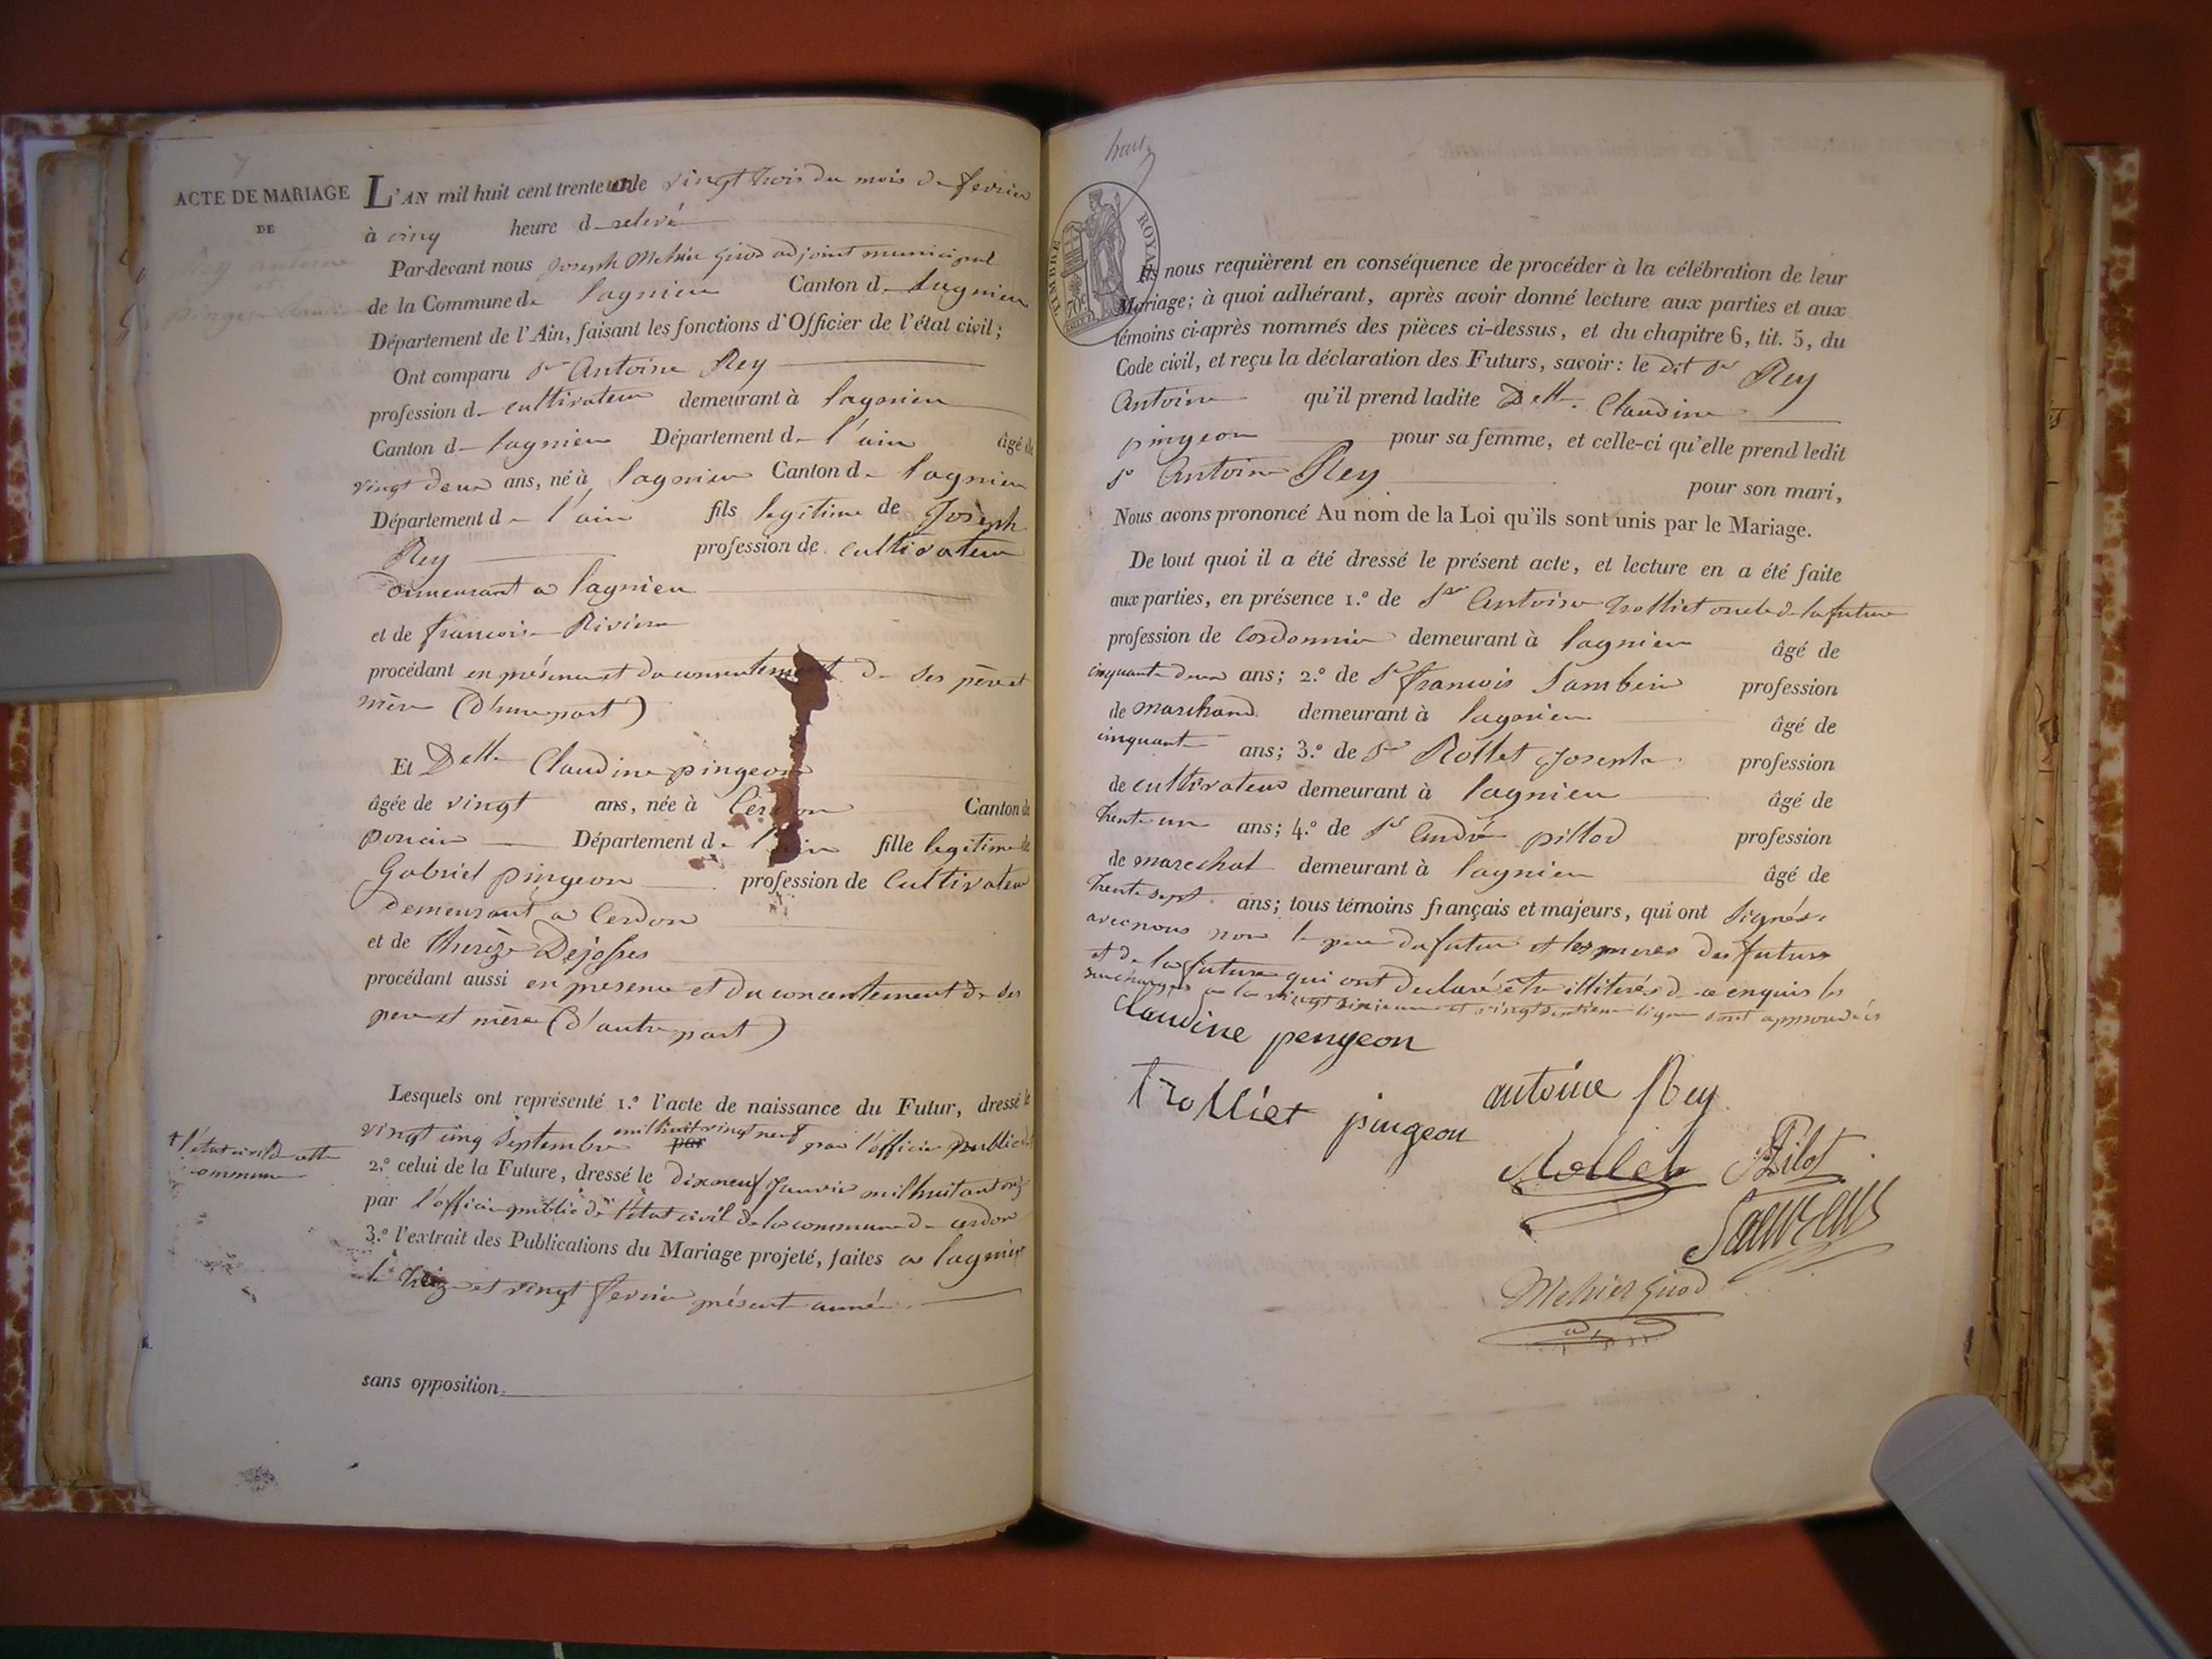 7
ACTE DE MARIAGE
DE
Rey antoine
et
pingeon Claudine
L'AN mil huit cent trente un le vingt trois du mois de fevrier
à cinq heure d relevé
Par-devant nous Joseph Mehier Girod adjoint municipal
de la Commune de lagnieu Canton de Lagnieu
Département de l'Ain, faisant les fonctions d'Officier de l'état civil;
Ont comparu Sr Antoine Rey
profession de cultivateur demeurant à lagnieu
Canton de lagnieu Département de l'ain âgé de
vingt deux ans, né à lagnieu Canton de lagnieu
Département de l'ain fils legitime de Joseph
Rey profession de cultivateur
demeurant a lagnieu
et de francoise Riviere
procédant en présence et du consentement de ses père et
mère (d'une part)
Et Delle Claudine pingeon
âgée de vingt ans, née à Cerdon Canton de
poncin Département de l'ain fille legitime de
Gabriel pingeon profession de Cultivateur
demeurant a Cerdon
et de Therèze Dejosses
procédant aussi en presence et du concentement de ses
pere et mère (d'autre part)
Lesquels ont représenté 1.º l'acte de naissance du Futur, dressé le
vingt cinq septembre mil huit vingt neuf par par l'officier public de
+ l'état civil de cette
commune
2.º celui de la Future, dressé le dixneuf Janvier mil huit cent onze
par l'officier public de l'état civil de la commune de cerdon
3.º l'extrait des Publications du Mariage projeté, faites a lagnieu
le treize et vingt fevrier présente année
sans opposition.
huit
TIMBRE ROYAL
70c
Ils nous requièrent en conséquence de procéder à la célébration de leur
Mariage; à quoi adhérant, après avoir donné lecture aux parties et aux
témoins ci-après nommés des pièces ci-dessus, et du chapitre 6, tit. 5, du
Code civil, et reçu la déclaration des Futurs, savoir: le dit Sr Rey
Antoine qu'il prend ladite Delle Claudine
pingeon pour sa femme, et celle-ci qu'elle prend ledit
Sr Antoine Rey pour son mari,
Nous avons prononcé Au nom de la Loi qu'ils sont unis par le Mariage.
De tout quoi il a été dressé le présent acte, et lecture en a été faite
aux parties, en présence 1.º de Sr Antoine Trolliet oncle de la future
profession de Cordonnier demeurant à lagnieu âgé de
cinquante deux ans; 2.º de Sr francois Sambein profession
de marchand demeurant à lagnieu âgé de
cinquante ans; 3.º de Sr Rollet Joseph profession
de cultivateur demeurant à lagnieu âgé de
trente un ans; 4.º de Sr André pillod profession
de marechal demeurant à lagnieu âgé de
trente sept ans; tous témoins français et majeurs, qui ont signés
avec nous non le pere du futur et les meres du futur
et de la future qui ont declaré etre illiterés de ce enquis les
surcharges a la vingt sixieme et vingt septieme ligne sont approuvées
Claudine pengeon
trolliet pingeon antoine Rey
Rollet Pilot
Mehier Girod